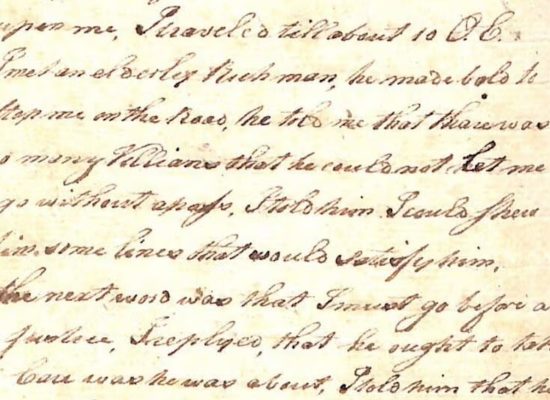 upon me, I traveled till about 10 O.C.
I met an elderley Rich man, he made bold to
stop me on the Road, he told me that thare was
so many Villians that he could not let me
go without a pass, I told him I could shew
him some lines that would satisfy him,
the next word was that I must go before a
justice, I replyed, that he ought to tak
Care was he was about, I told him that he